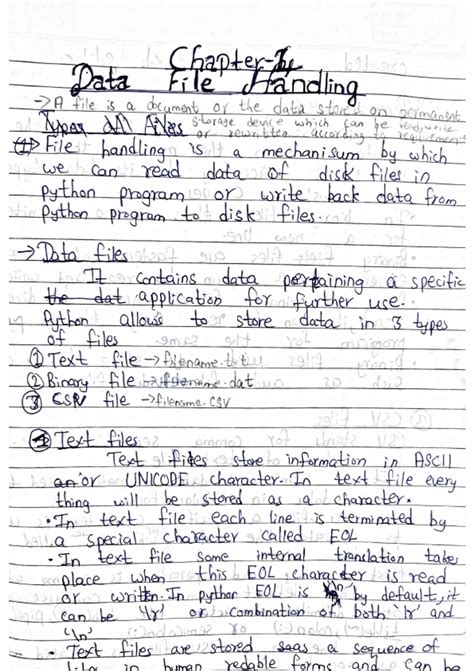 Chapter-
Data File Handling
→ A file is a document or the data stored on permanent
storage device which can be read, write
Types of files or rewritten according to requirement
File handling is a mechanisum by which
we can read data of disk files in
python program or write back data from
python program to disk files.
→ Data files
It contains data pertaining a specific
the dat application for further use.
Python allows to store data in 3 types
of files
① Text file → filename.txt
② Binary file → filename.dat
③ CSV file → filename.CSV
Text files
Text files store information in ASCII
or UNICODE character. In text file every
thing will be stored as a character.
• In text file each line is terminated by
a special character called EOL
• In text file some internal translation takes
place when this EOL character is read
or written. In python EOL is '\n' by default, it
can be '\r' or combination of both '\r' and
'\n'
• Text files are stored as a sequence of
in human redable forms and can be